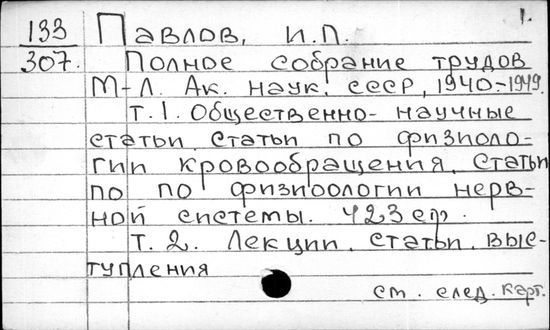 1.
133 Павлов, И.П.
307. Полное собрание трудов
М-Л. Ак. наук. СССР, 1940-1949.
Т.1. Общественно-научные
статьи. Статьи по физиоло-
гии кровообращения. Статьи
по по физиоологии нерв-
ной системы. 423 стр.
Т. 2. Лекции. Статьи. Выс-
тупления
см. след. карт.